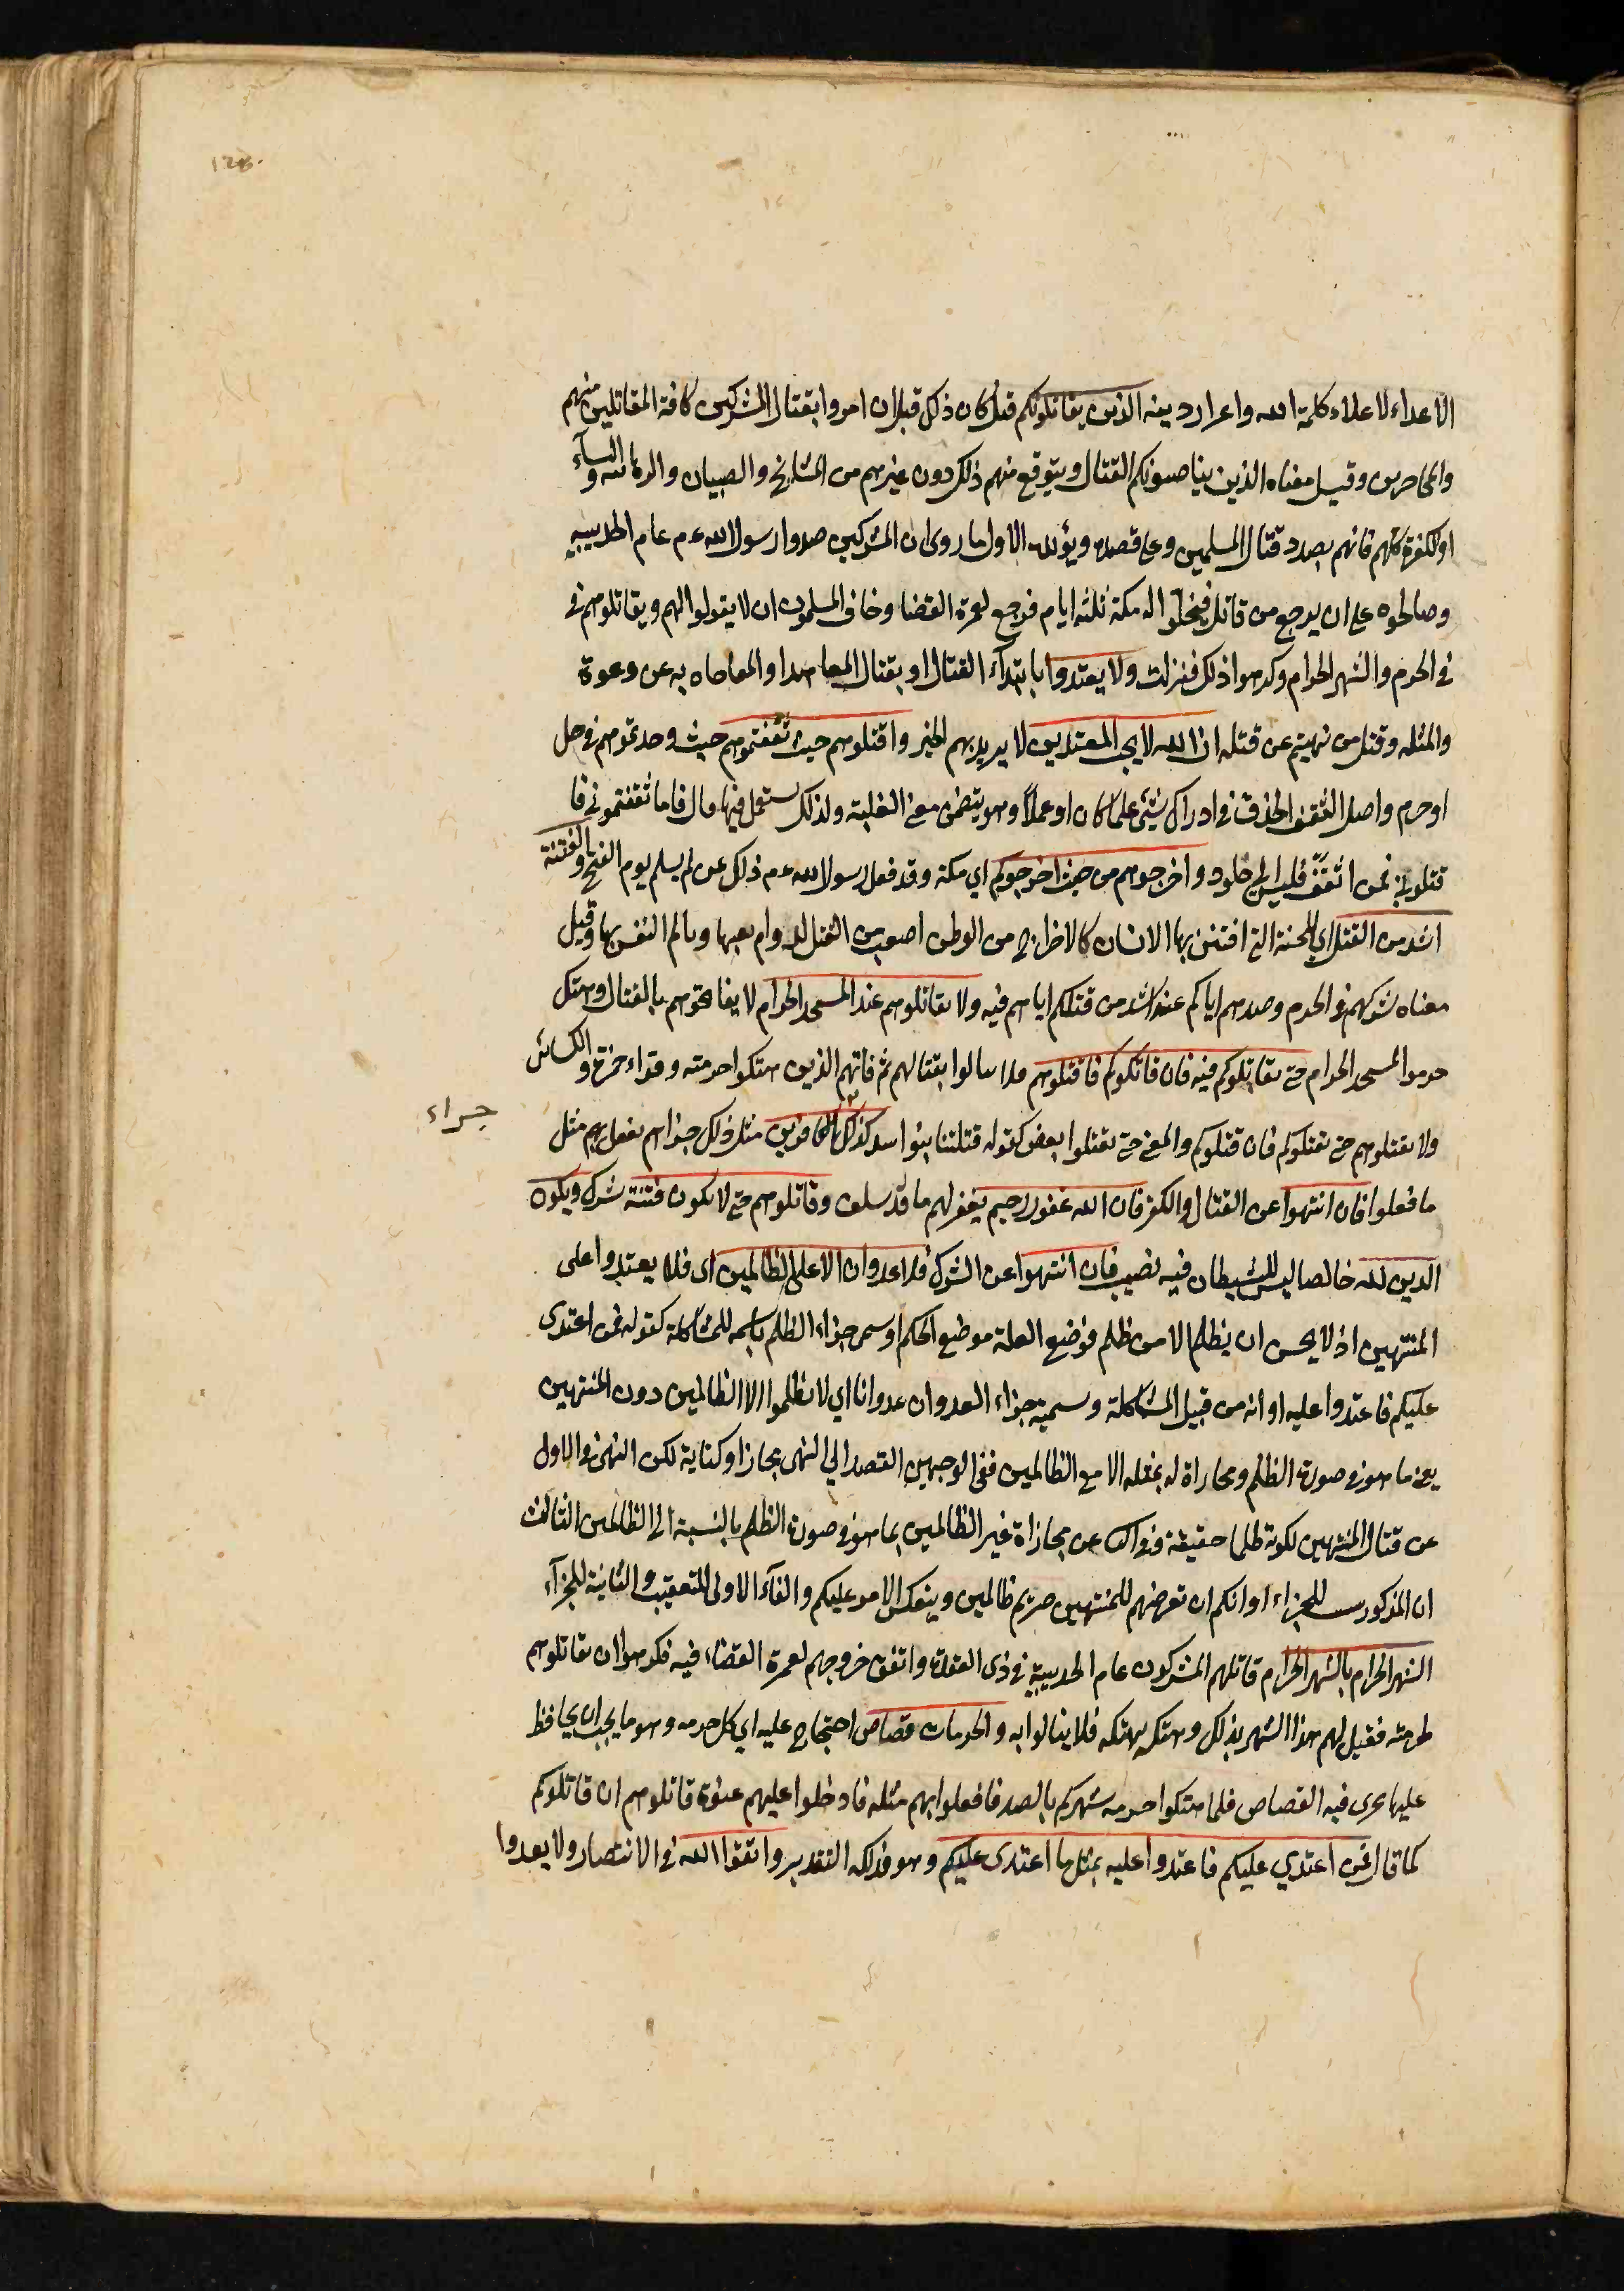 128.
الاعداء لاعلاء كلمة الله واعزاز دينه الذين يقاتلونكم قيل كان ذلك قبل ان امروا بقتال المشركين كافة المقاتلين منهم
والمحاجزين وقيل معناه الذين يناصبونكم القتال ويتوقع منهم ذلك دون غيرهم من المشايخ والصبيان والرهابنه والنسآء
او الكفرة كلهم فانهم بصدد قتال المسلمين وعلى قصده ويؤيد الاول ما روى ان المشركين صدوا رسول الله عم عام الحديبيه
وصالحوه على ان يرجع من قابل فيخلّوا له مكة ثلثه ايام فرجع لعمرة القضا وخاف المسلمون ان لا يفوا لهم ويقاتلوهم في
في الحرم والشهر الحرام وكرهوا ذلك فنزلت ولا يعتدوا بابتدآء القتال او بقتال المعاهد او المفاجاه به عن دعوة
والمثله وقتل من نهيتم عن قتله ان الله لا يحب المعتدين لا يريد بهم الخير واقتلوهم حيث ثقفتموهم حيث وجدتموهم في حل
او حرم واصل الثقف الحذق في ادراك شيئ علما كان او عملاً وهو يتضمن معنى الغلبة ولذلك يستعمل فيها قال فاما تثقفتموني فا
قتلوني فمن اثقف فليس الى خلود واخرجوهم من حيث اخرجوكم اي مكة وقد فعل رسول الله عم ذلك عن لم يسلم يوم الفتح والفتنة
اشد من القتل اي المحنة التي افتتن بها الانسان كالاخراج من الوطن اصعب من القتل لدوام تعبها وتالم النفس بها وقيل
معناه شركهم في الحرم وصدهم اياكم عنه اشد من قتلكم اياهم فيه ولا تقاتلوهم عند المسجد الحرام لا يفاتحوهم بالقتال وهتك
حرموا المسجد الحرام حتى يقاتلوكم فيه فان قاتلوكم فاقتلوهم فلا تبالوا بقتالهم ثم فانهم الذين هتكوا حرمته وقراء حمزة والكسائى
ولا تقتلوهم حتى يقتلوكم فان قتلوكم والمعنى حتى يقتلوا بعضكم كقوله قتلتنا بنوا اسد كذلك جزاء الكافرين مثل ذلك جزاهم يفعل بهم مثل
ما فعلوا فان انتهوا عن القتال والكفر فان الله غفور رحيم يغفر لهم ما قد سلف وقاتلوهم حتى لا تكون فتنة شرك ويكون
الدين لله خالصا ليس للشيطان فيه نصيب فان انتهوا عن الشرك فلا عدوان الا على الظالمين اى فلا يعتدوا على
المنتهين اذ لا يحسن ان يظلم الا من ظلم فوضع العلة موضع الحكم او سمى جزاء الظلم باسمه للمشاكلة كقوله فمن اعتدى
عليكم فاعتدوا عليه او انه من قبيل المشاكلة وتسمية جزاء العدوان عدوانا اي لا تظلموا الا الظالمين دون المنتهين
يعنى ما هو في صورة الظلم ومجازاة له بمثله الا مع الظالمين ففي الوجهين القصد الي النهى مجازا وكناية لكن النهى في الاول
عن قتال المنتهين لكونه ظلما حقيقة وفي الثاني عن مجازاة غير الظالمين بما هو في صورة الظلم بالنسبة الى الظالمين الثالث
ان المذكور سبب للجزاء او انكم ان تعرضتم للمنتهين صرتم ظالمين وينعكس الامر عليكم والفآء الاولى للتعقيب والثانية للجزآء
الشهر الحرام بالشهر الحرام قاتلهم المشركون عام الحديبية في ذى القعدة واتفق خروجهم لعمرة القضاء فيه فكرهوا ان يقاتلوهم
لحرمته فقيل لهم هذا الشهر بذلك وهتكه بهتكه فلا يبالوا به والحرمات قصاص احتجاج عليه اي كل حرمه وهو ما يجب ان يحافظ
عليها يجرى فيه القصاص فلما هتكوا حرمه شهركم بالصد فافعلوا بهم مثله فادخلوا عليهم عنوة قاتلوهم ان قاتلوكم
كما قال فمن اعتدي عليكم فاعتدوا عليه بمثل ما اعتدى عليكم وهو فذلكه التقدير واتقوا الله في الانتصار ولا يعدوا
جزاء